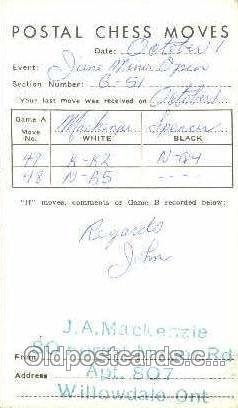 POSTAL CHESS MOVES
Date: October 1
Event: Jane Miner Open
Section Number: G-51
Your last move was received on October
Game A Mackenzie Spencer
Move No. WHITE BLACK
47 K-K2 N-Q4
48 N-R5 ----
"If" moves, comments or Game B recorded below:
Regards
John
J.A. Mackenzie
From Rd
Address Apt. 807
Willowdale Ont
Oldpostcards.com